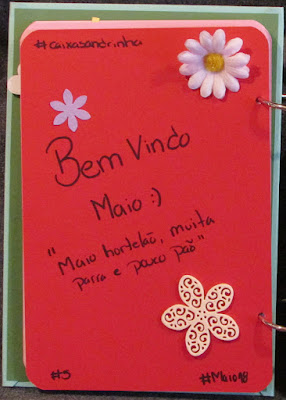 #caixasandrinha
Bem Vindo
Maio :)
"Maio hortelão, muita
parra e pouco pão"
#5
#Maio18